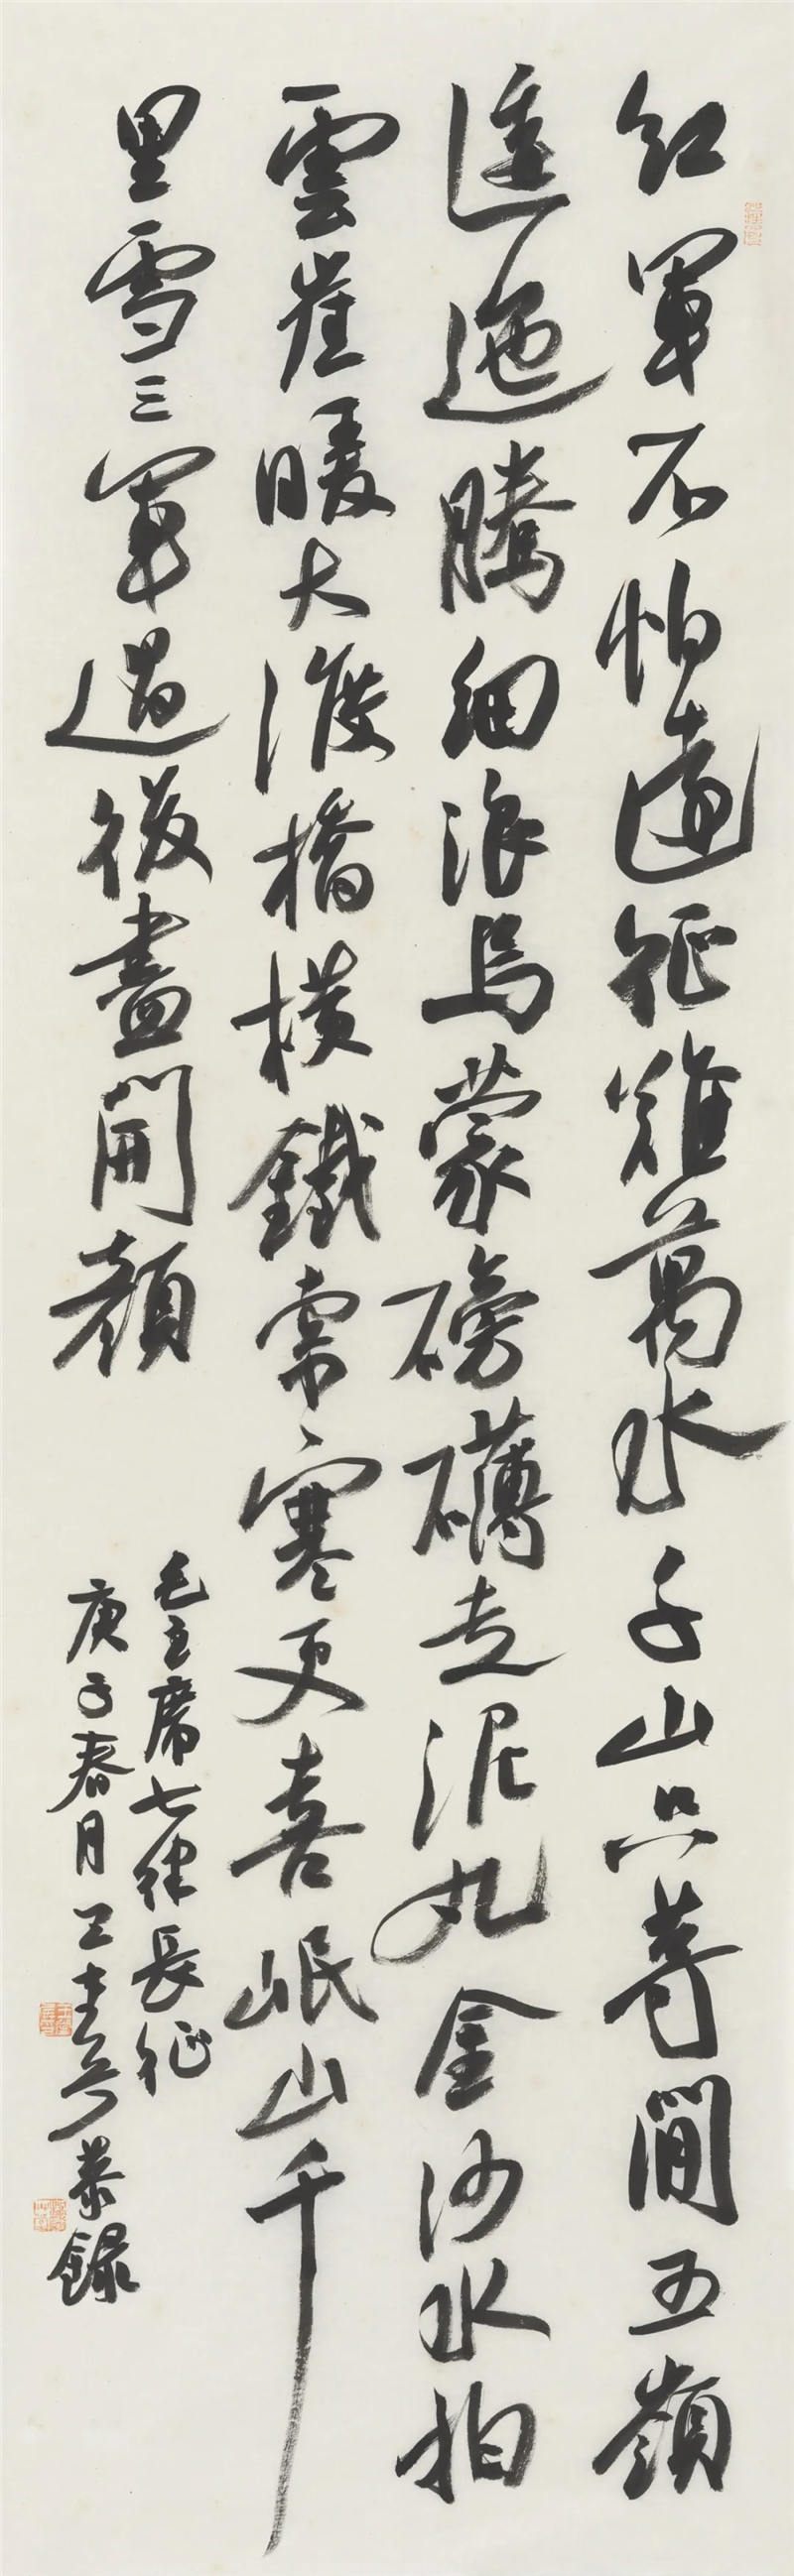 紅軍不怕遠征難萬水千山只等閒五嶺
逶迤騰細浪烏蒙磅礴走泥丸金沙水拍
雲崖暖大渡橋橫鐵索寒更喜岷山千
里雪三軍過後盡開顏
毛主席七律長征
庚子春月王恭錄